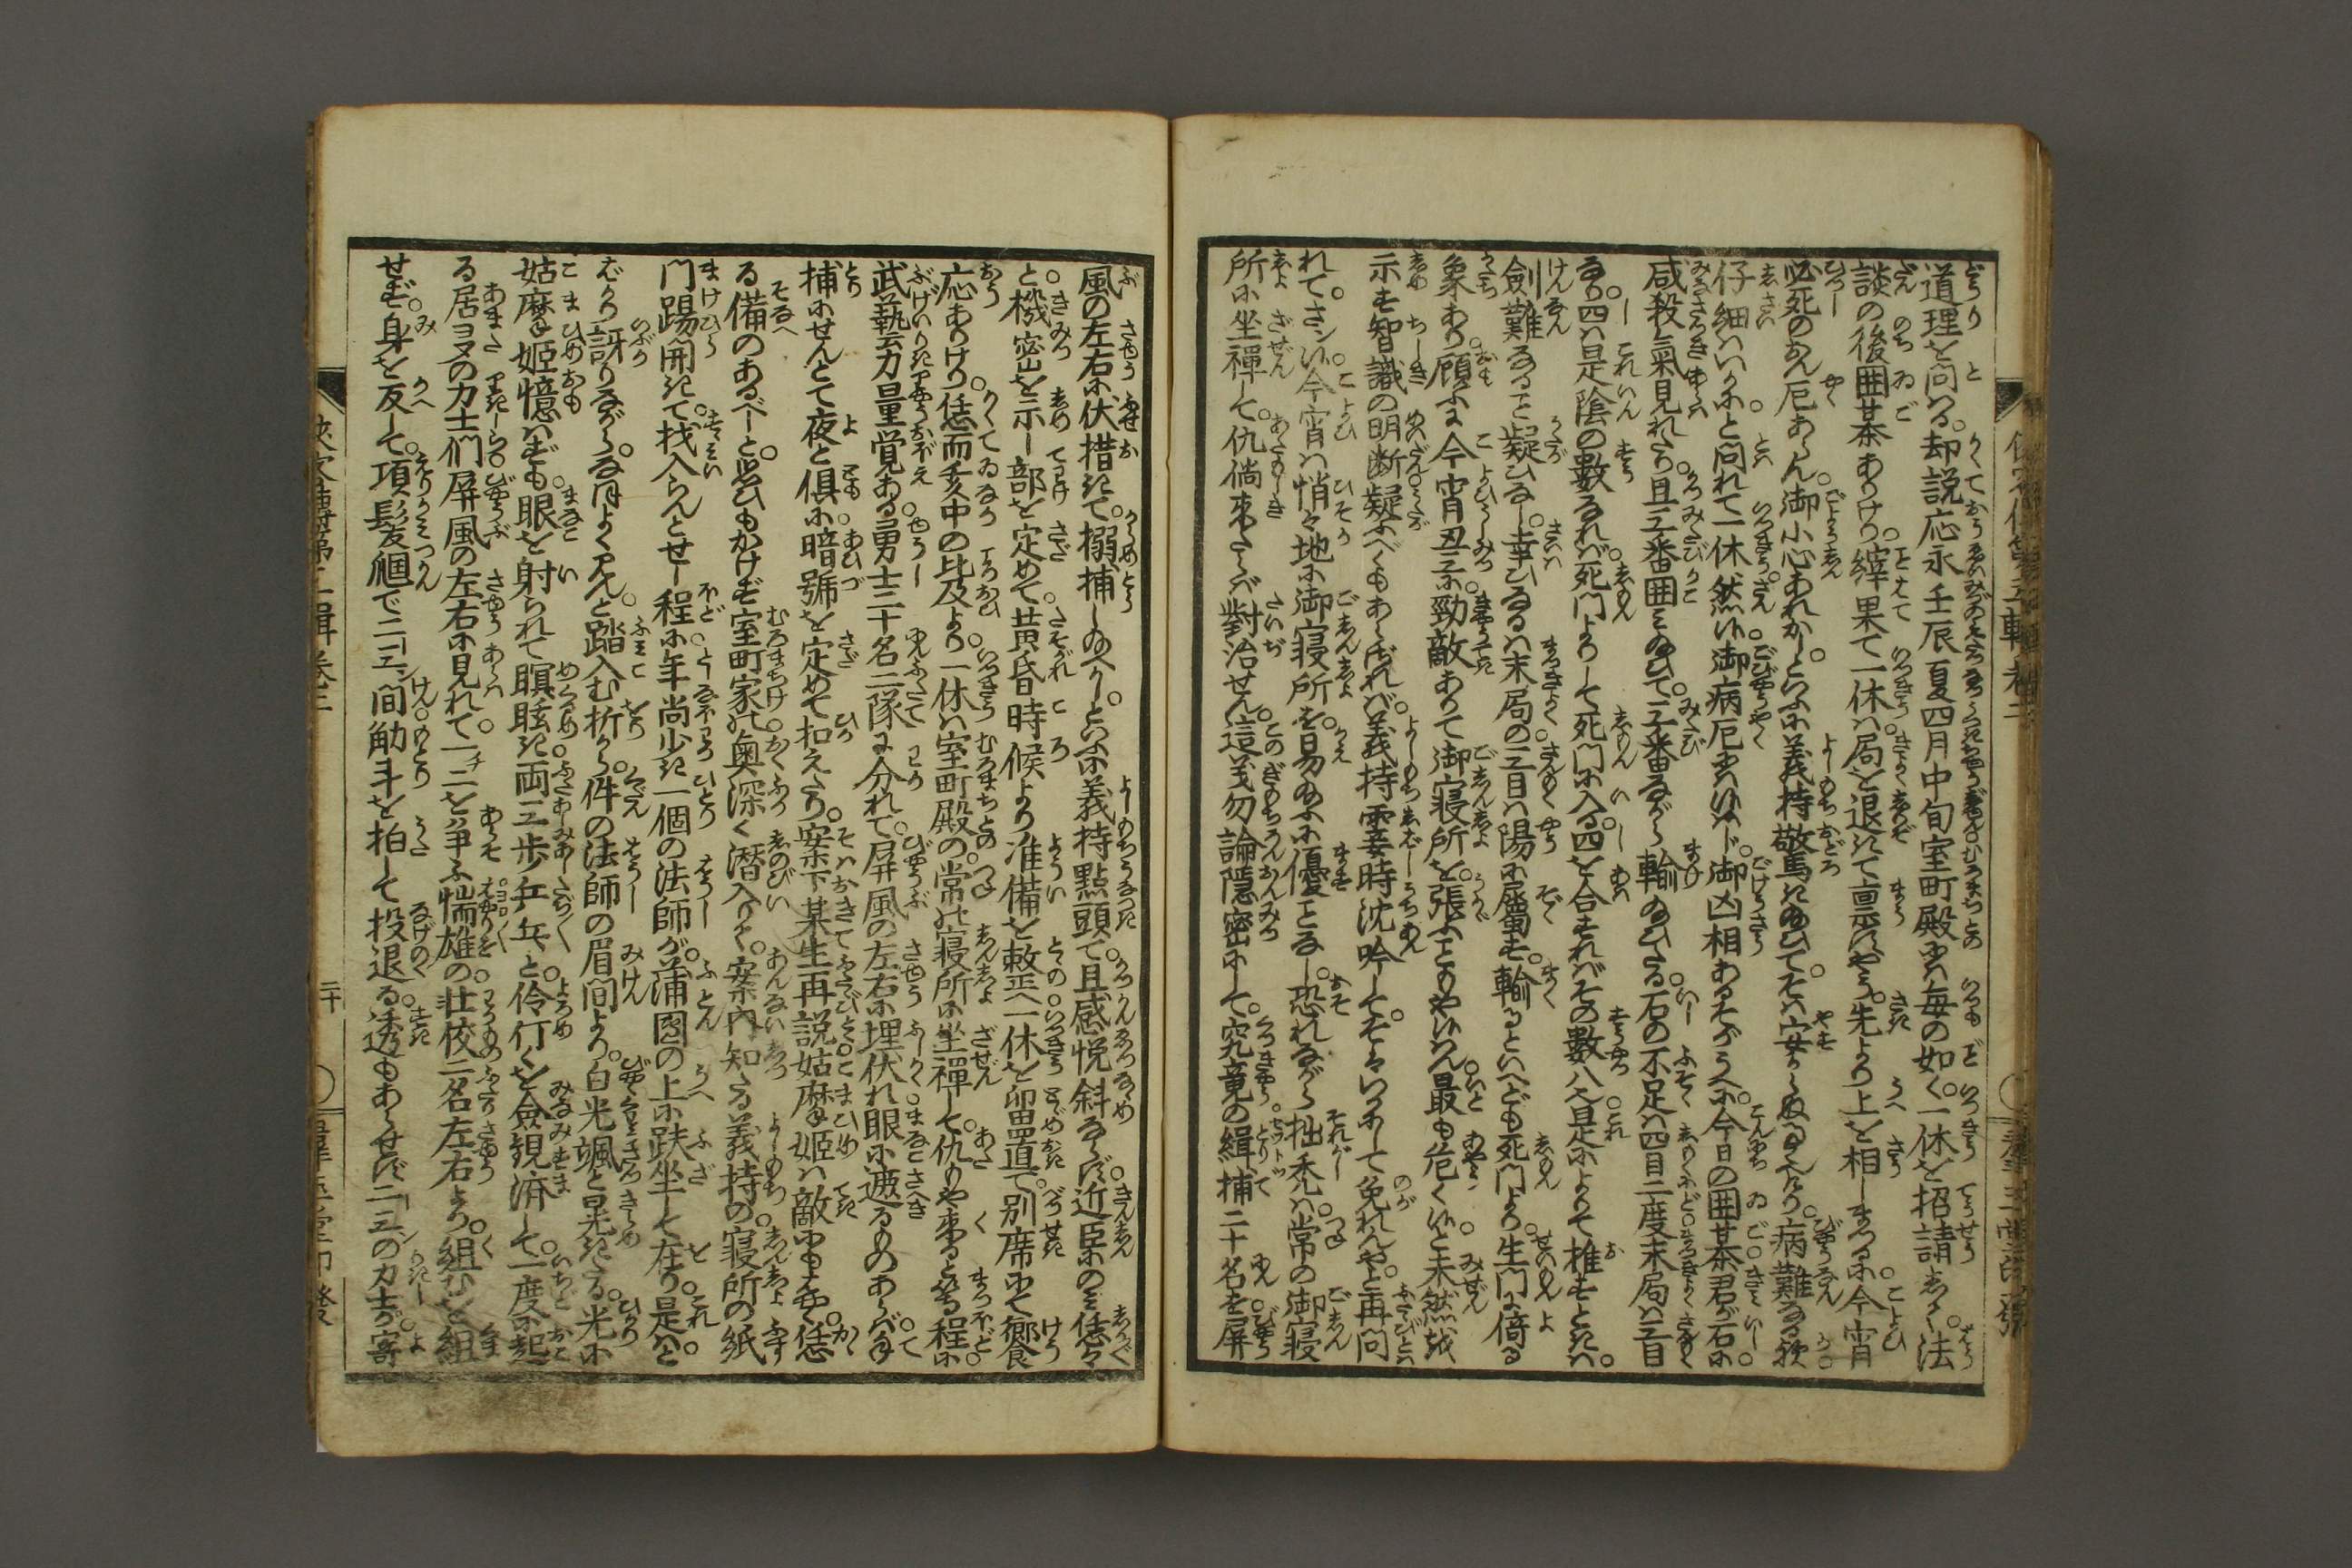 道理を問る。却説応永壬辰夏四月中旬室町殿には毎の如く。一休を招請あらく。法
談の後囲棊ありけり。縡果て一休は。局を退きて稟すやう。先より上を相しまつるに。今宵
必死のおん厄あらん。御小心あれかし。といふに義持敬馬き給ひて。そは安からぬ事なり。病難なる歟
仔細はいかに。と問れて一休。然候。御病厄には候はず。御凶相あるそがうへに。今日の囲棊。君が石に
咸殺氣見れたり。且三番囲み給ひて。三番ながら輸給ひたる。石の不足は四目。二度末局は三目
なり。四は是陰の數なれば。死門よりして死門に入る。四を合すればその數八也。是によりて推すときは。
劍難なること疑ひなし。幸ひなるは末局の。三目は陽に屬す。輸るといへども死門より。生門に倚る
象あり。願ふに今宵丑三に。勁敵ありて御寝所を。張ふこともや候はん。最も危く候。と未然を
示す智識の明断。疑ふべくもあらざれば。義持霎時沈吟して。そをいかにして免れんや。と再問
れて。さン候。今宵は悄々地に御寝所を。易給ふに優ことなし。恐れながら拙禿は。常の御寝
所に坐禪して。仇倘来たらば對治せん。這義勿論隠密にして。究竟の緝捕二十名を屏
風の左右に伏措きて。搦捕し給へかし。といふに義持點頭て。且感悦斜ならず。近臣にのミ恁々
と。機密を示し部を定めて。黄昏時候より准備を整へ。一休を留置て。別席にて饗
応ありけり。恁而亥中の比及より。一休は室町殿の。常の寝所に坐禪して。仇もや来ると待程に。
武藝力量覚ある。勇士二十名二隊に分れて。屏風の左右に埋伏れ。眼に遮るものあらば。
捕にせんとて夜と倶に。暗號を定めて扣えたり。案下某生再説姑摩姫は。敵にもかく。恁
る備のあるべし。と思ひもかけず室町家の。奥深く潜入りて。案内知たる義持の。寝所の紙
門踢開きて。找入らんとせし程に。年尚少き一個の法師が。蒲團の上に趺坐して在り。是は。と
ばかり訝りながら。なほよく見んと踏入む折から。件の法師の眉間より。白光颯と晃きたる。光に
姑摩姫憶はずも。眼を射られて瞑眩き。両三歩乒乓と。伶仃くを僉視済して。一度に起
る居ヨヌの力士們。屏風の左右に見れて。一二を爭ふ惴雄の。壮佼二名左右より。組むを組
せず。身を反して。項髪𢴃で二三間。觔斗を拍して投退る。透もあらせず二三の力士が寄